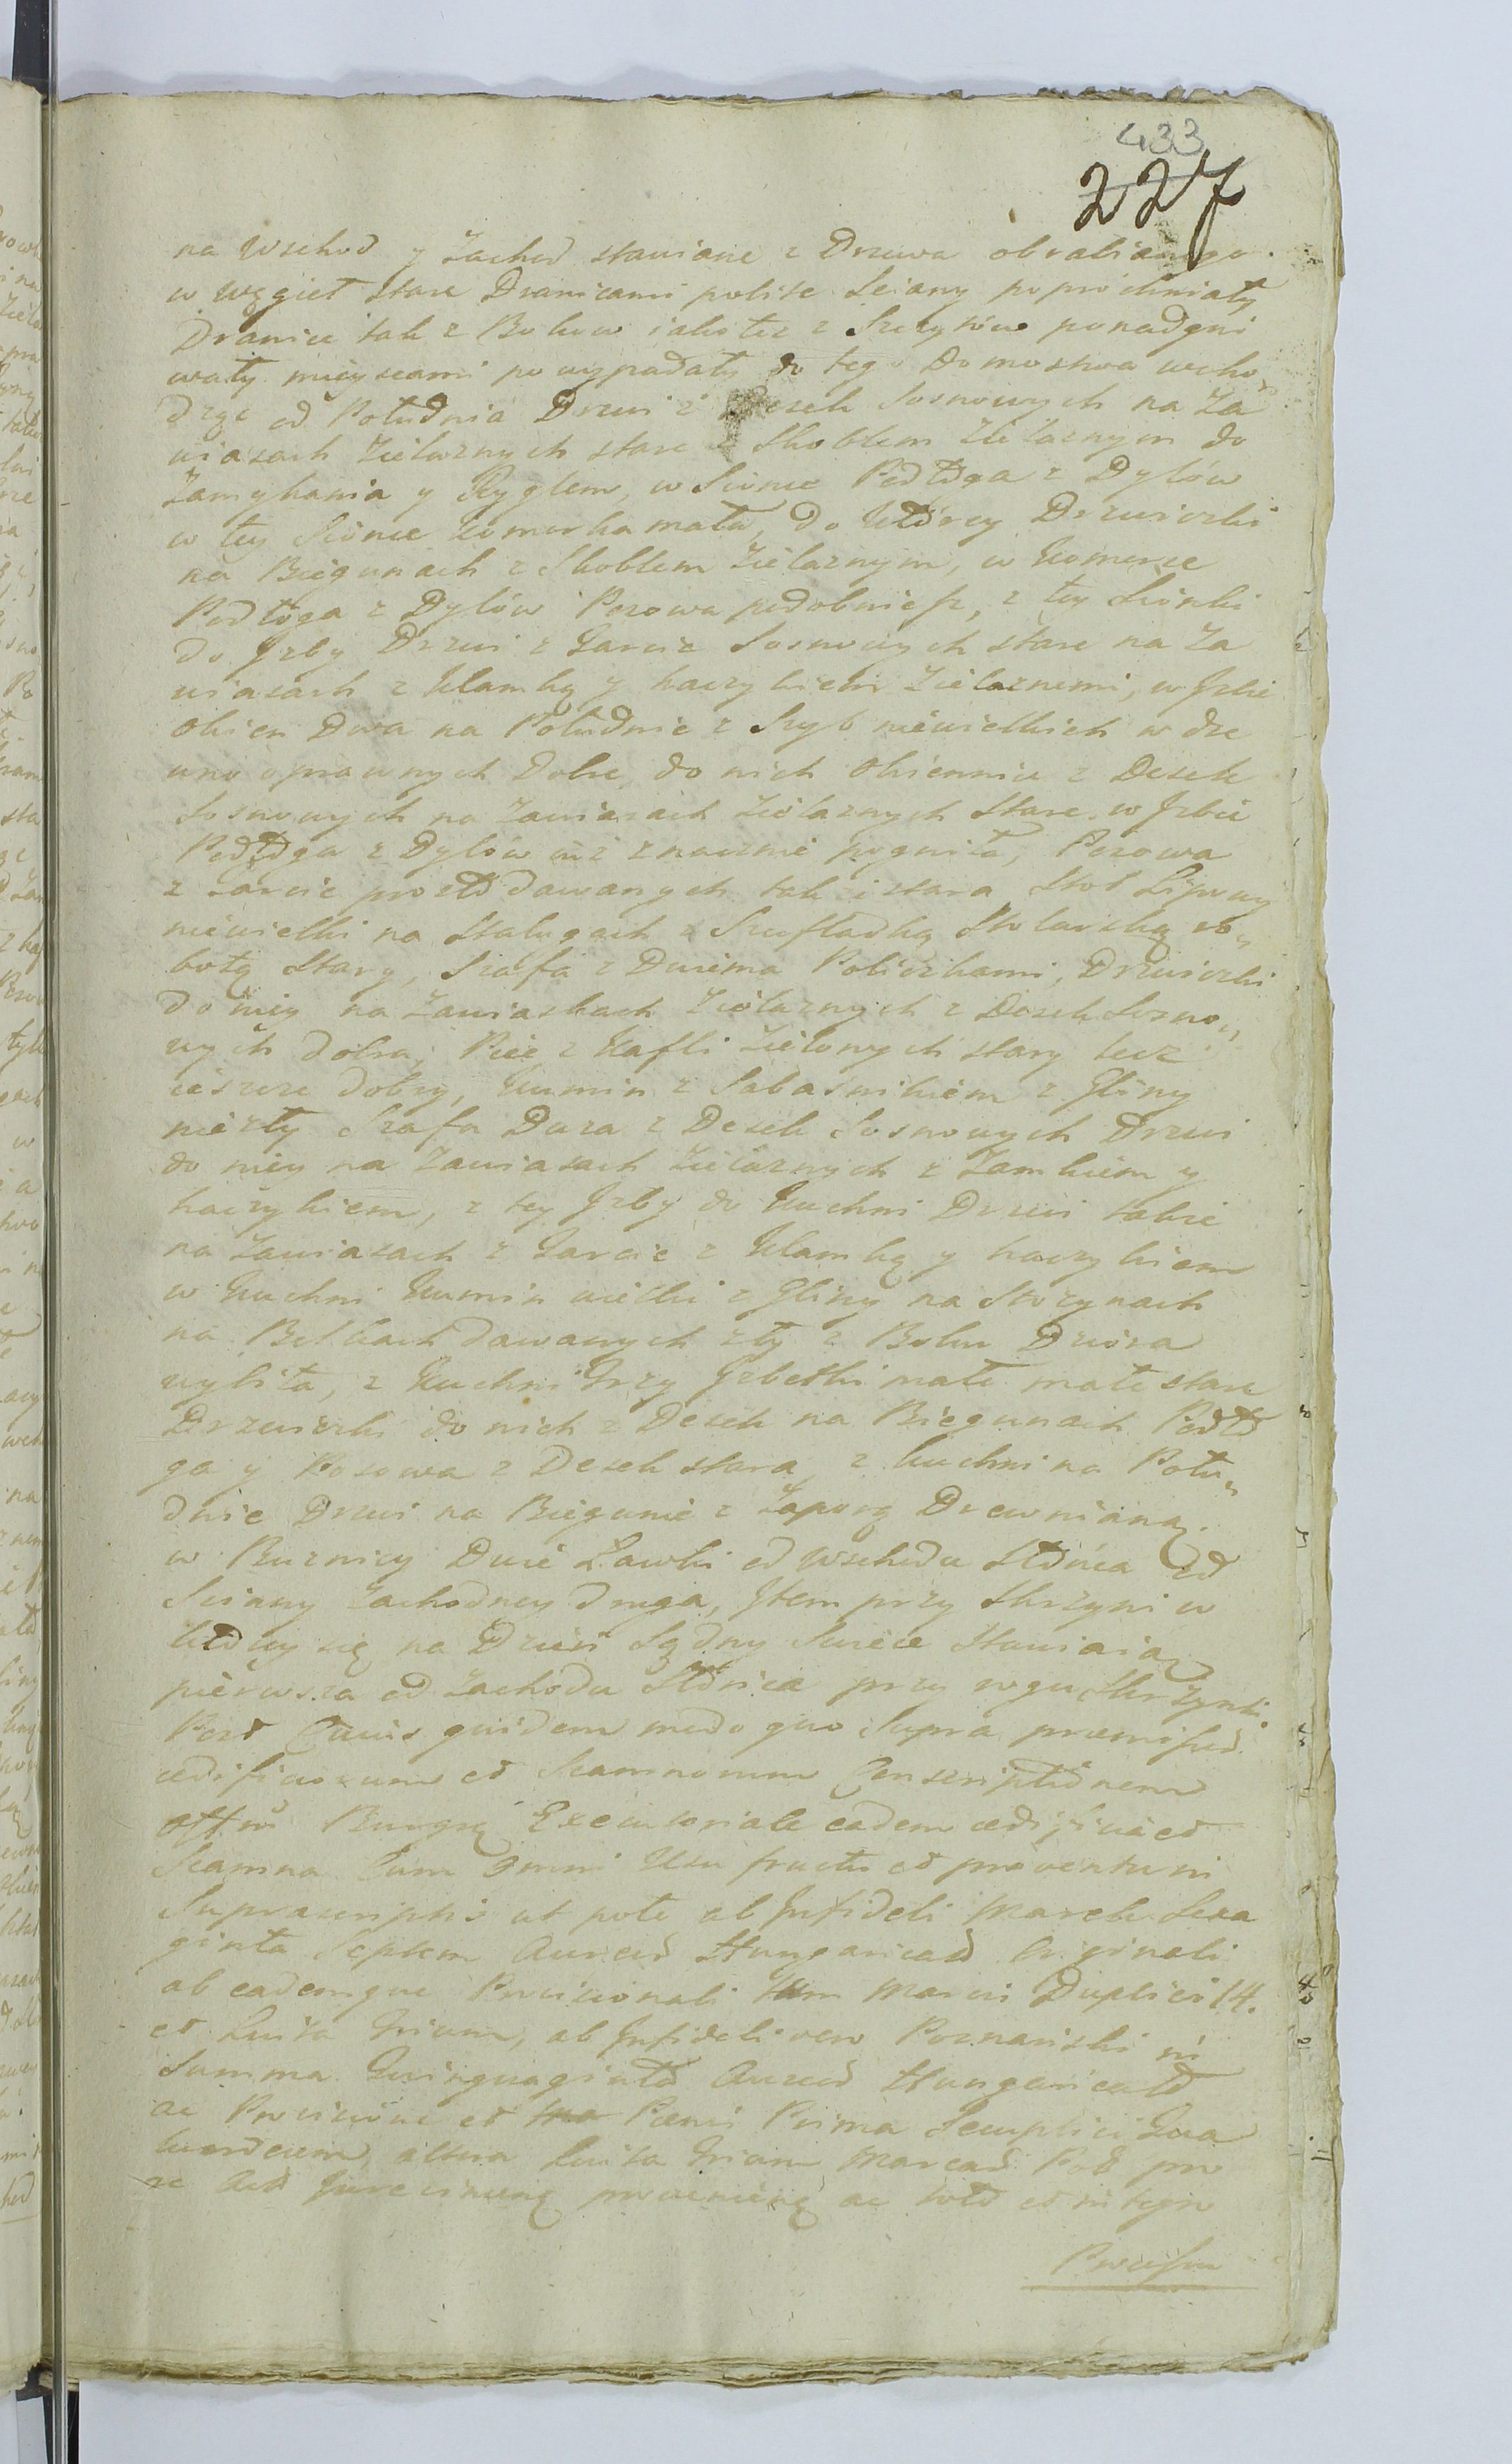 433
227
na Wschod y Zachod stawiane z Drzewa obrabianego.
w Węgieł stare Dranicami pobite Sciany poprochniały
Dranice tak z Bokow iako tez z Szczytów ponadgni
wały mieyscami powypadały do tego Domostwa wcho„
dząc od Południa Drzwi z Desek Sosnowych na Za
wiasach Żielaznych stare z Skoblem Żielaznym do
Zamykania y Ryglem, w Sionce Podłoga z Dylów
w tey Sionce Komorka mała, do którey Drzwiczki
na Biegunach z Skoblem Żielaznym, w Komorce
Podłoga z Dylów Pozowa podobnież, z tey Sionki
do Jzby Drzwi z Tarcic Sosnowych stare na Za
wiasach z Klamką y haczykiem Żielaznemi, w Jzbie
Okien Dwa na Południe z Szyb niewielkich w drze
wno oprawnych Dobre, do nich Okiennice z Desek
Sosnowych na Zawiasach Żielaznych Stare. w Jzbie
Podłoga z Dylów iuż znacznie pogniła, Pozowa
z Tarcic prosto dawanych takż stara, Stoł Lipowy
niewielki na Stalugach z Szufladką Stolarską ro„
botą Stary, Szafa z Dwiema Policzkami, Drzwiczki
do niey na Zawiaskach Żielaznych z Desek Sosno„
wych dobra, Piec z Kafli Żielonych stary lecz
ieszcze dobry, Kumin z Sabasnikiem z Gliny
niezły Szafa Duza z Desek Sosnowych Drzwi
do niey na Zawiasach Żielaznych z Zamkiem y
haczykiem, z tey Jzby do Kuchni Drzwi takie
na Zawiasach z Tarcic z Klamką y haczykiem
w Kuchni Kumin wielki z Gliny na Stozynach
na Belkach dawanych zły z Boku Dziura
wybita, z Kuchni trzy Jzbetki małe małe stare
Drzwiczki do nich z Desek na Biegunach Podło
ga y Pozowa z Desek stara, z Kuchni na Połu„
dnie Drzwi na Biegunie z Zaporą Drewnianą.
w Buznicy Dwie Ławki od Wschodu Słońca od
Sciany Zachodney druga, Jtem przy Skrzyni w
którey się na Dzień Sądny Swiece Stawiaią
pierwsza od Zachodu Słońca przy rogu Skrzynki.
Post Cuius quidem modo quo Supra praemissod
aedificiorum et Scamnorum Conscriptionem
Offm Burgrę Executoriale eadem aedificia et
Scamna Cum omni Usu fructu et proventu in
Suprascriptis ut pote ab Jnfideli Marek Sexa
ginta Septem Aureor Hungaricał Originali
ab eademque Provisionali Marcis Duplici 14.
et Luita trium, ab Jnfideli vero Poznański in
Summa Quinquaginta Aureor Hungaricał
ac Provisione et Poenis Prima Semplici Qua
tuordecim, altera Luita trium Marcar Pol pro
ut Act Jurecinunę provenienę ac toto et integro
Processu